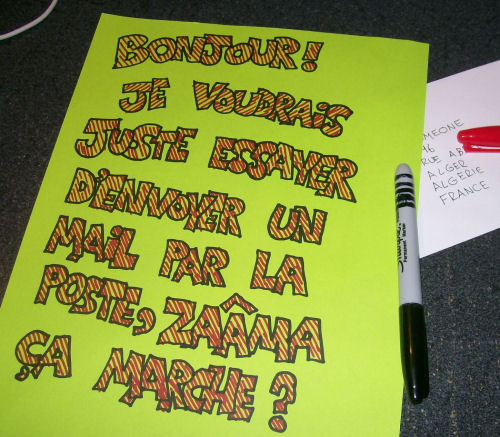 BONJOUR!
JE VOUDRAIS
JUSTE ESSAYER
D'ENVOYER UN
MAIL PAR LA
POSTE, ZAÂMA
ÇA MARCHE?
OMEONE
46
RUE AB
ALGER
ALGERIE
FRANCE
Sharpie
Permanent Marker